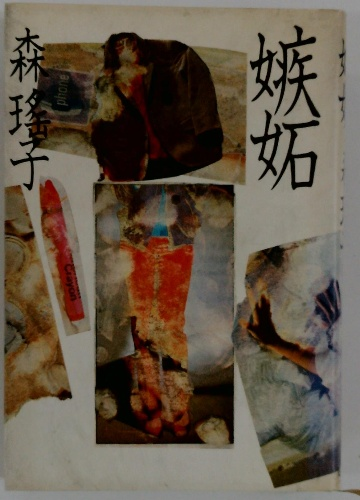 嫉妬
森瑤子
phone